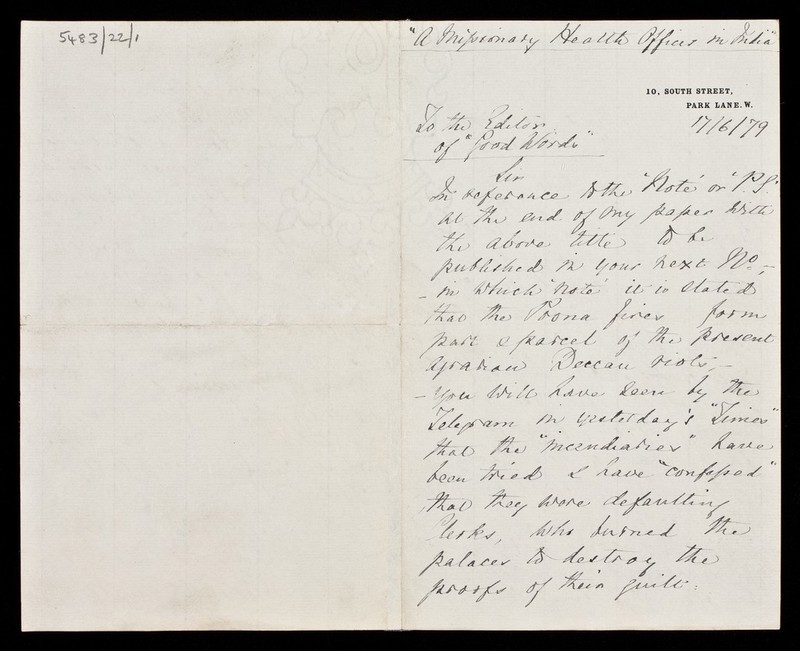 5483/22/1
"A Missionary Health Officer in India"
10, SOUTH STREET,
PARK LANE. W.
17/6/79
To the Editor
of "Good Words"
Sir
In reference to the "Note" or "P.S."
at the end of my paper with
the above title to be
published in your next No. —
— in which "note" it is stated
that the Poona fires form
part & parcel of the present
agrarian Deccan riots, —
— you will have seen by the
Telegram in yesterday's "Times"
that the "incendiaries" have
been tried & have "confessed"
that they were defaulting
Clerks, who burned the
palaces to destroy the
proofs of their guilt: